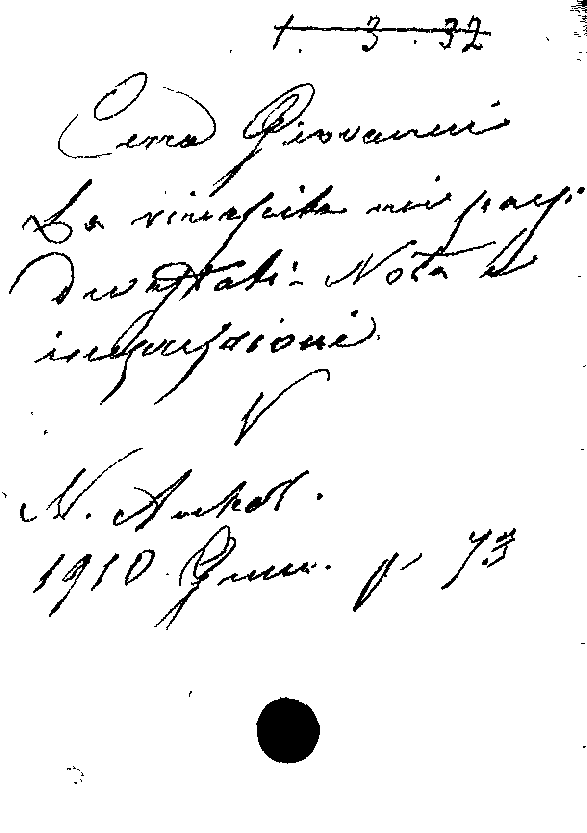 1. 3. 32
Cerra Giovanni
La rinascita nei paesi
Devastati - Nota e
impressioni
V
N. Antol.
1910 Genn. p. 73